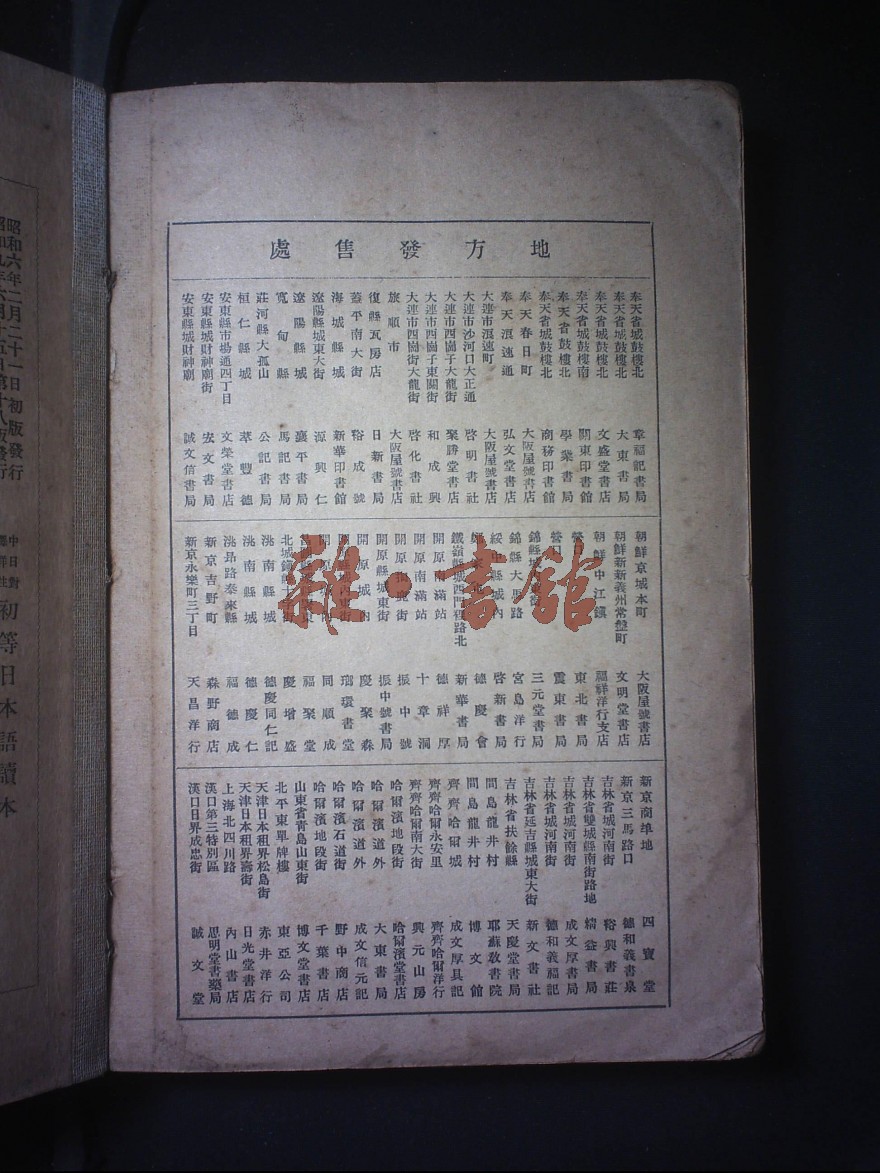 地方發售處
奉天省城鼓樓北 章福記書局
奉天省城鼓樓北 大東書局
奉天省城鼓樓北 文盛堂書店
奉天省城鼓樓南 關東印書館
奉天省鼓樓北 學聚書局
奉天省城鼓樓北 商務印書館
奉天春日町 大阪屋號書店
奉天浪速通 弘文堂書店
大連市浪速町 大阪屋號書店
大連市沙河口大正通 啓明書社
大連市西崗子大龍街 聚勝堂書店
大連市西崗子東關街 和成興
大連市西崗街大龍街 啓化書社
旅順市 大阪屋號書店
復縣瓦房店 日新書局
蓋平南大街 裕成號
海城縣城 新華印書館
遼陽縣城東大街 源興仁
遼陽縣城 襄平書局
寬甸縣 馬記書局
莊河縣大孤山 公記書局
桓仁縣城 萃豐德
安東縣市場通四丁目 文榮堂書店
安東縣城財神廟街 宏文書局
安東縣城財神廟 誠文信書局
朝鮮京城本町 大阪屋號書店
朝鮮新義州常盤町 文明堂書店
朝鮮中江鎮 福祥洋行支店
東北書局
營口 震東書局
錦縣 三元堂書局
錦縣大馬路 宮島洋行
綏中縣城內 啓新書局
德慶會
鐵嶺縣城西門裡路北 新華書局
開原南滿站 德祥厚
開原南滿站 十章潤
開原 振中號
開原縣城東街 振中號書局
開原城內 慶聚森
瑯環書堂
同順成
福聚堂
慶增盛
洮南縣城 德慶同仁記
洮南縣城 德慶仁
洮昂路泰來縣 福德成
新京吉野町 森野商店
新京永樂町三丁目 天昌洋行
新京商埠地 四寶堂
新京三馬路口 德和義書泉
吉林省城河南街 裕興書莊
吉林省雙城縣南街路地 精益書局
吉林省城河南街 成文厚書局
吉林省城河南街 德和義福記
吉林省延吉縣城東大街 新文書社
吉林省扶餘縣 天慶堂書局
間島龍井村 耶蘇教書院
間島龍井村 博文館
齊齊哈爾城 成文厚具記
齊齊哈爾永安里 齊齊哈爾洋行
齊齊哈爾南大街 興元山房
哈爾濱地段街 哈爾濱堂書店
哈爾濱道外 大東書局
哈爾濱道外 成文信元記
哈爾濱石道街 野中商店
哈爾濱地段街 千葉書店
山東省青島山東街 博文堂書店
北平東單牌樓 東亞公司
天津日本租界松島街 赤井洋行
天津日本租界壽街 日光堂書店
上海北四川路 內山書店
漢口第三特別區 思明堂書藥局
漢口日界成忠街 誠文堂
雜·書館
昭和六年二月二十一日初版發行
中日對
初等日本語讀本